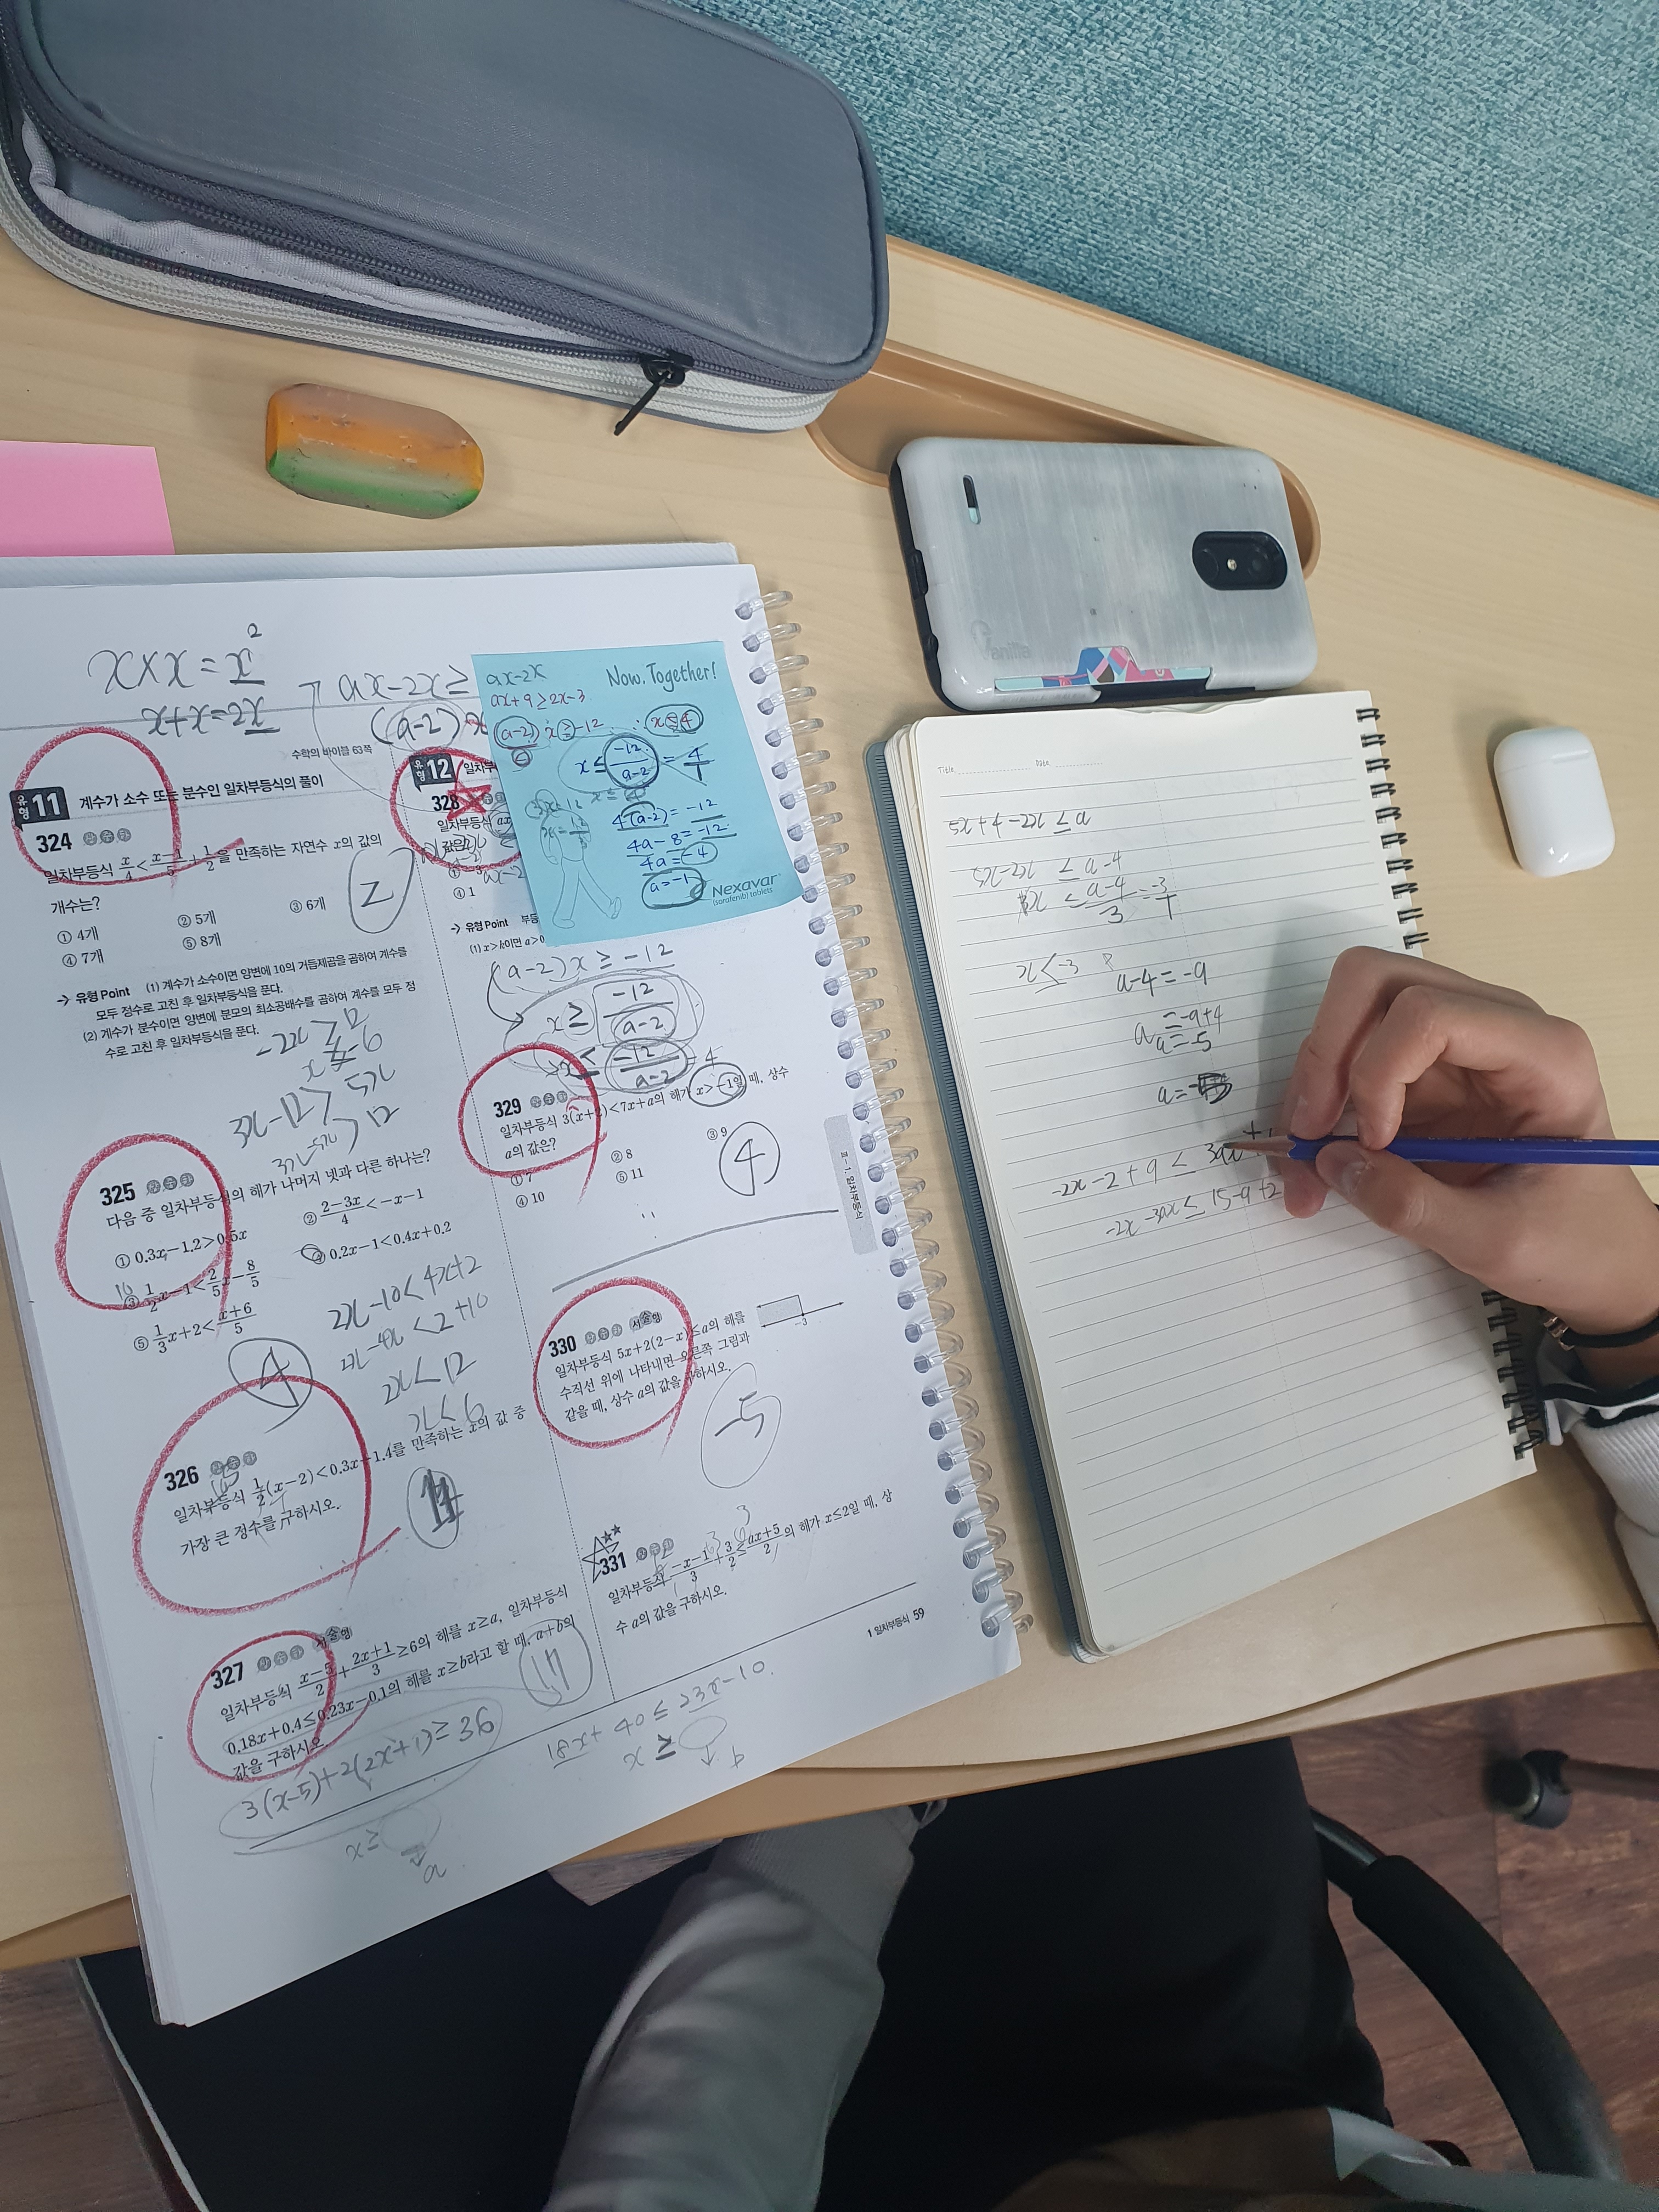 x×x=x²
x+x=2x
ax-2x≥
(a-2)x
수학의 바이블 63쪽
유형 11 계수가 소수 또는 분수인 일차부등식의 풀이
324 상 중 하
일차부등식 x/4<(x-1)/5+1/2을 만족하는 자연수 x의 값의
개수는?
① 4개 ② 5개 ③ 6개
④ 7개 ⑤ 8개
2
→ 유형Point (1) 계수가 소수이면 양변에 10의 거듭제곱을 곱하여 계수를
모두 정수로 고친 후 일차부등식을 푼다.
(2) 계수가 분수이면 양변에 분모의 최소공배수를 곱하여 계수를 모두 정
수로 고친 후 일차부등식을 푼다.
3x-12>5x
3x-5x>12
325 상 중 하
다음 중 일차부등식의 해가 나머지 넷과 다른 하나는?
① 0.3x-1.2>0.5x ② (2-3x)/4<-x-1
③ 1/2x-1<2/5x-8/5 ④ 0.2x-1<0.4x+0.2
⑤ 1/3x+2<(x+6)/5
4
2x-10<4x+2
2x-4x<2+10
2x<12
x<6
326 상 중 하
일차부등식 1/2(x-2)<0.3x+1.4를 만족하는 x의 값 중
가장 큰 정수를 구하시오.
11
327 상 중 하 서술형
일차부등식 (x-5)/2+(2x+1)/3≥6의 해를 x≥a, 일차부등식
0.18x+0.4≤0.23x-0.1의 해를 x≥b라고 할 때, a+b의
값을 구하시오.
17
3(x-5)+2(2x+1)≥36
x≥
a
18x+40≤23x-10
x≥
유형 12 일차부
328
일차부등식 ax
값은?
① -3
④ 1
→ 유형Point 부등
(1) x>k이면 a>0
ax-2x
Now. Together!
ax+9≥2x-3
(a-2)x≥-12 ∴ x≤4
x≤-12/(a-2)=4/1
4(a-2)=-12
4a-8=-12
4a=-4
a=-1
Nexavar
(sorafenib) tablets
(a-2)x≥-12
x≥-12/(a-2)
x≤-12/(a-2)=4
329 상 중 하
일차부등식 3(x+2)<7x+a의 해가 x>-1일 때, 상수
a의 값은?
① 7 ② 8 ③ 9
④ 10 ⑤ 11
4
Ⅱ-1. 일차부등식
330 상 중 하 서술형
일차부등식 5x+2(2-x)≤a의 해를
수직선 위에 나타내면 오른쪽 그림과
같을 때, 상수 a의 값을 구하시오.
-3
-5
331 상 중 하
일차부등식 (-x-1)/3+3/2≤(ax+5)/2의 해가 x≤2일 때, 상
수 a의 값을 구하시오.
1 일차부등식 59
Vanilla
Title Date
5x+4-2x≤a
5x-2x≤a-4
x≤(a-4)/3=-3/1
x≤-3
a-4=-9
a=-9+4
a=-5
-2x-2+9<3ax+
-2x-3ax≤15-9+2